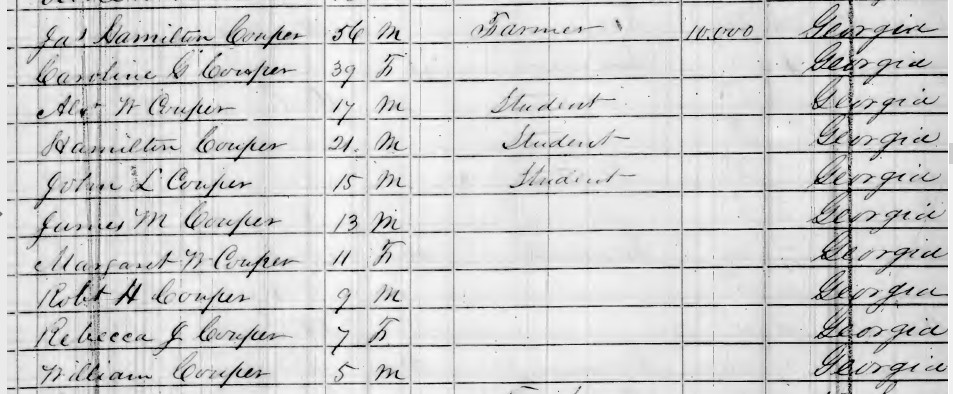 Jas Hamilton Couper 56 M Farmer 10.000 Georgia
Caroline G Couper 39 F Georgia
Alexr W Couper 17 M Student Georgia
Hamilton Couper 21. M Student Georgia
John L Couper 15 M Student Georgia
James M Couper 13 M Georgia
Margaret W Couper 11 F Georgia
Robt H Couper 9 M Georgia
Rebecca J Couper 7 F Georgia
William Couper 5 M Georgia